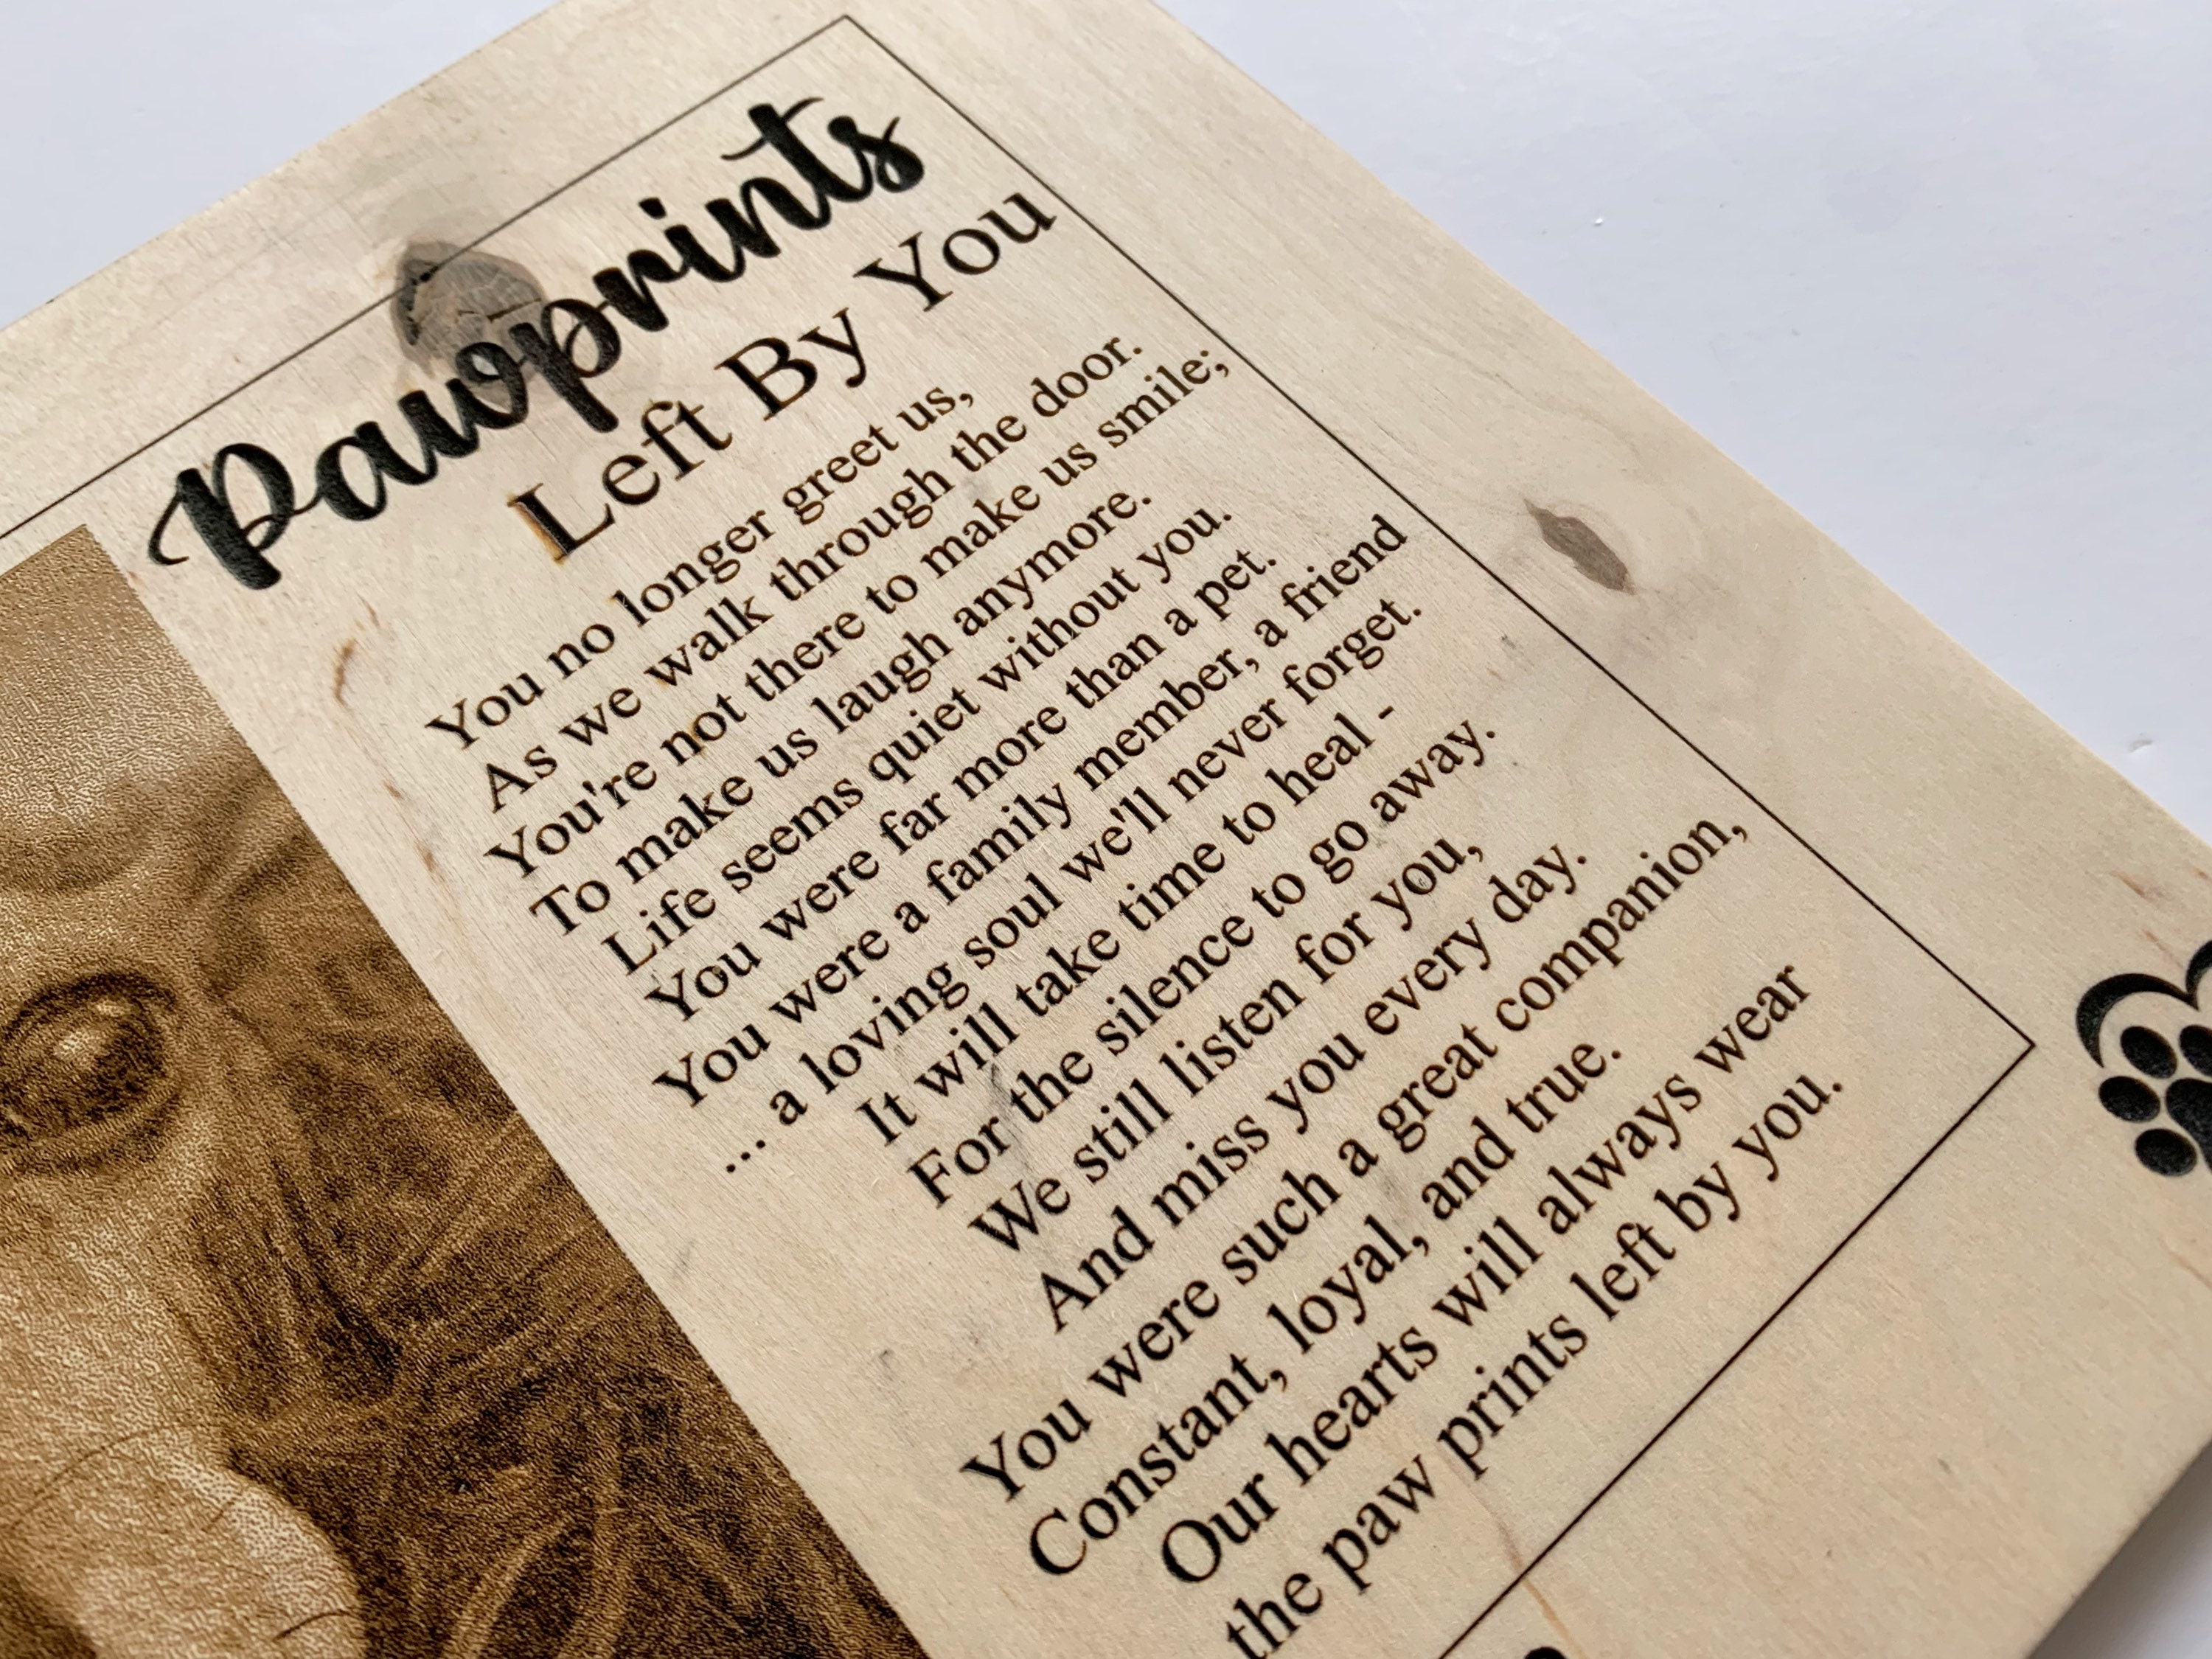 Pawprints
Left By You
You no longer greet us,
As we walk through the door.
You're not there to make us smile;
To make us laugh anymore.
Life seems quiet without you.
You were far more than a pet.
You were a family member, a friend
... a loving soul we'll never forget.
It will take time to heal -
For the silence to go away.
We still listen for you,
And miss you every day.
You were such a great companion,
Constant, loyal, and true.
Our hearts will always wear
the paw prints left by you.